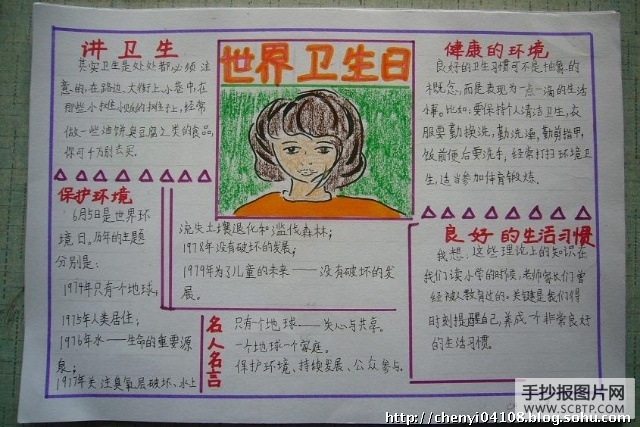 世界卫生日
讲卫生
其实卫生是处处都必须注
意的,在路边、大街上、小巷中,在
那些小摊小贩的摊子上,经常
做一些油饼,臭豆腐之类的食品,
你可千万别去买。
保护环境
6月5日是世界环
境日。历年的主题
分别是:
1974年只有一个地球;
1975年人类居住;
1976年水——生命的重要源
泉;
1977年关注臭氧层破坏、水土
流失土壤退化和滥伐森林;
1978年没有破坏的发展;
1979年为了儿童的未来——没有破坏的发
展。
名人名言
只有一个地球——关心与共享。
一个地球一个家庭。
保护环境、持续发展、公众参与。
健康的环境
良好的卫生习惯可不是抽象的
概念,而是表现为一点一滴的生活
小事。比如:要保持个人清洁卫生,衣
服要勤换洗,勤洗澡,勤剪指甲,
饭前便后要洗手,经常打扫环境卫
生,适当参加体育锻炼。
良好的生活习惯
我想,这些理论上的知识在
我们读小学的时候,老师家长们曾
经被人教育过的。关键是我们得
时刻提醒自己,养成一个非常良好
的生活习惯。
手抄报图片网
WWW.SCBTP.COM
http://chenyi04108.blog.sohu.com